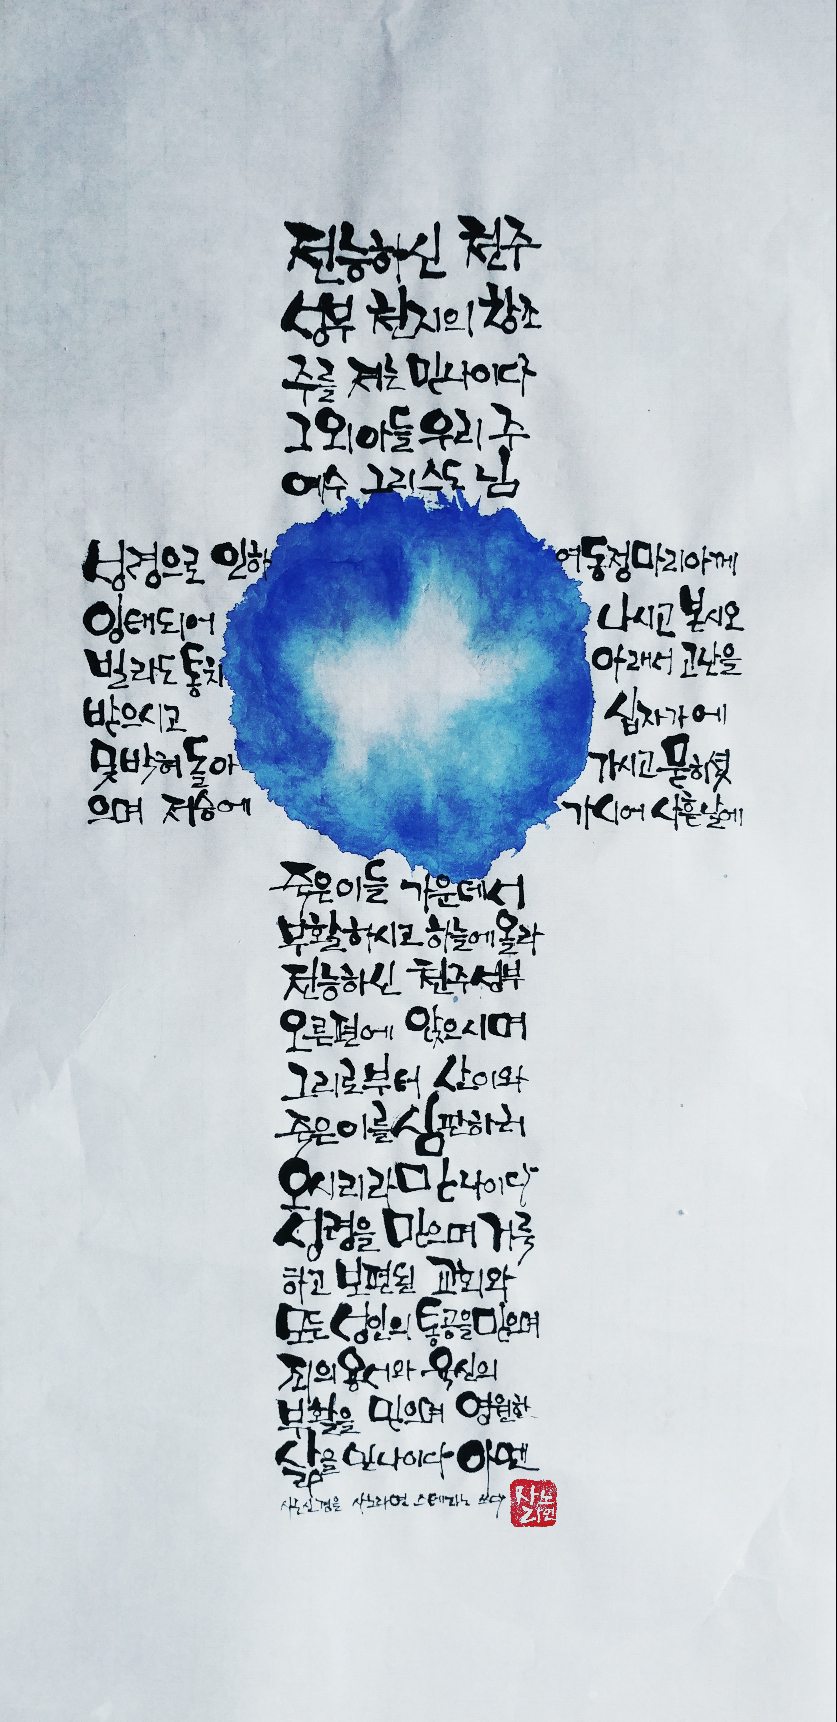 전능하신 천주
성부 천지의 창조
주를 저는 믿나이다
그 외아들 우리 주
예수 그리스도 님
성령으로 인하여 동정마리아께
잉태되어 나시고 본시오
빌라도 통치 아래서 고난을
받으시고 십자가에
못박혀 돌아가시고 묻히셨
으며 저승에 가시어 사흗날에
죽은이들 가운데서
부활하시고 하늘에 올라
전능하신 천주성부
오른편에 앉으시며
그리로부터 산이와
죽은이를 심판하러
오시리라 믿나이다
성령을 믿으며 거룩
하고 보편된 교회와
모든 성인의 통공을 믿으며
죄의 용서와 육신의
부활을 믿으며 영원한
삶을 믿나이다 아멘
사도신경을 사노라면 스테파노 쓰다
사노
라면